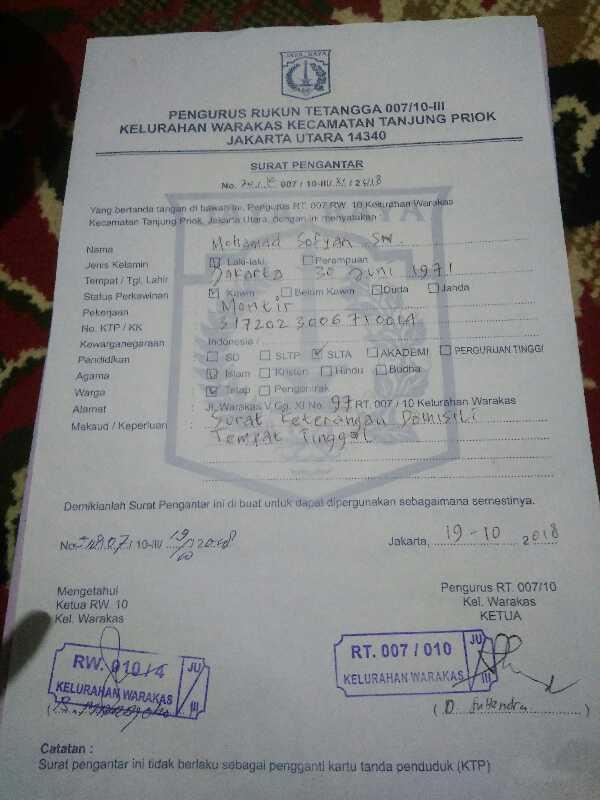 JAYA RAYA
PENGURUS RUKUN TETANGGA 007/10-III
KELURAHAN WARAKAS KECAMATAN TANJUNG PRIOK
JAKARTA UTARA 14340
SURAT PENGANTAR
No. 007 / 10-III/ XI / 2018
Yang bertanda tangan di bawah ini, Pengurus RT. 007 RW. 10 Kelurahan Warakas
Kecamatan Tanjung Priok, Jakarta Utara, dengan ini menyatakan :
Nama : Mohamad Sofyan
Jenis Kelamin : Laki-laki Perempuan
Tempat / Tgl. Lahir : Jakarta 30 Juni 1971
Status Perkawinan : Kawin Belum Kawin Duda Janda
Pekerjaan : Montir
No. KTP / KK :
Kewarganegaraan : Indonesia /
Pendidikan : SD SLTP SLTA AKADEMI PERGURUAN TINGGI
Agama : Islam Kristen Hindu Budha
Warga : Tetap Pengontrak
Alamat : Jl. Warakas V Gg. XI No. 97 RT. 007 / 10 Kelurahan Warakas
Maksud / Keperluan : Surat Keterangan Domisili
Tempat Tinggal
Demikianlah Surat Pengantar ini di buat untuk dapat dipergunakan sebagaimana semestinya.
No. / 10-III/ 19/10 / 2018
Jakarta, 19-10 2018
Mengetahui
Ketua RW. 10
Kel. Warakas
Pengurus RT. 007/10
Kel. Warakas
KETUA
RW. 010/4 JU
KELURAHAN WARAKAS III
RT. 007 / 010 JU
KELURAHAN WARAKAS III
Catatan :
Surat pengantar ini tidak berlaku sebagai pengganti kartu tanda penduduk (KTP)